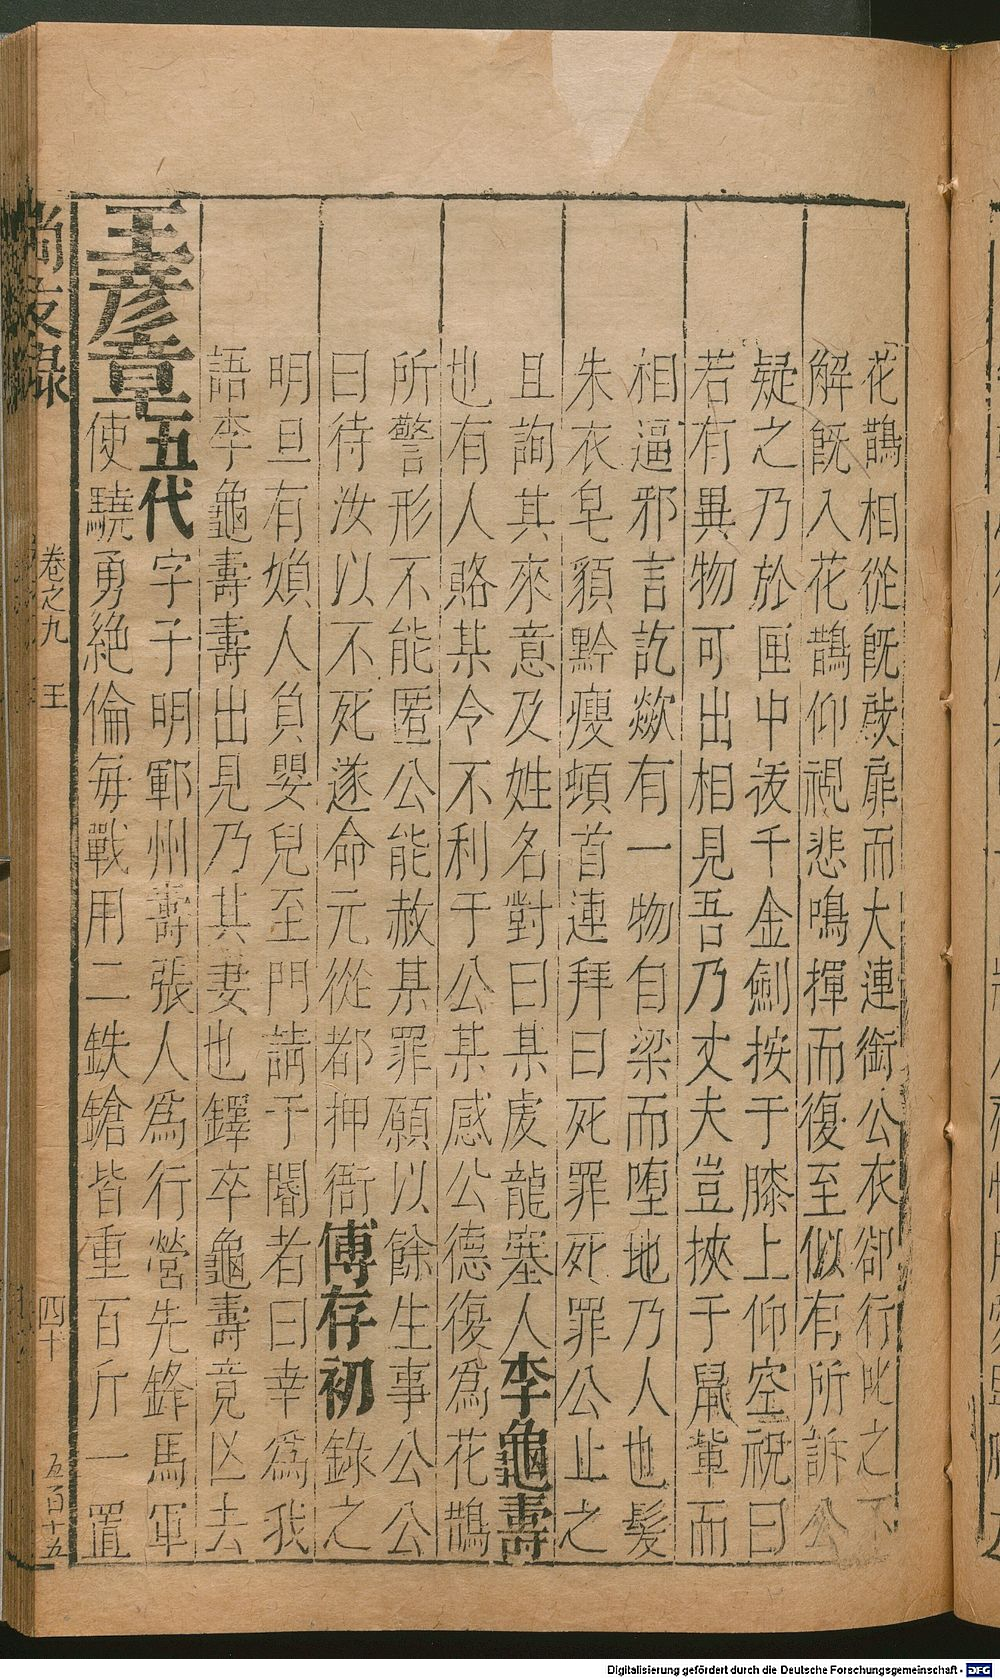 花鵲相從旣啟扉而大連銜公衣卻行叱之不
解旣入花鵲仰視悲鳴揮而復至似有所訴公
疑之乃於匣中拔千金劍按于膝上仰空祝曰
若有異物可出相見吾乃丈夫豈挾于鼠輩而
相逼邪言訖歘有一物自梁而堕地乃人也髮
朱衣皂貌黔瘦頓首連拜曰死罪死罪公止之
且詢其來意及姓名對曰某䖏龍塞人李龜壽
也有人賂某今不利于公某感公德復爲花鵲
所警形不能匿公能赦某罪願以餘生事公公
曰待汝以不死遂命元從都押衙傅存初錄之
明旦有婦人負嬰兒至門請于閽者曰幸爲我
語李龜壽壽出見乃其妻也鐸卒龜壽竟亾去
王彦章五代字子明鄆州壽張人爲行營先鋒馬軍
使驍勇絶倫每戰用二鉄鎗皆重百斤一置
尚友録 卷之九 王 四十 五百十五
Digitalisierung gefördert durch die Deutsche Forschungsgemeinschaft - DFG